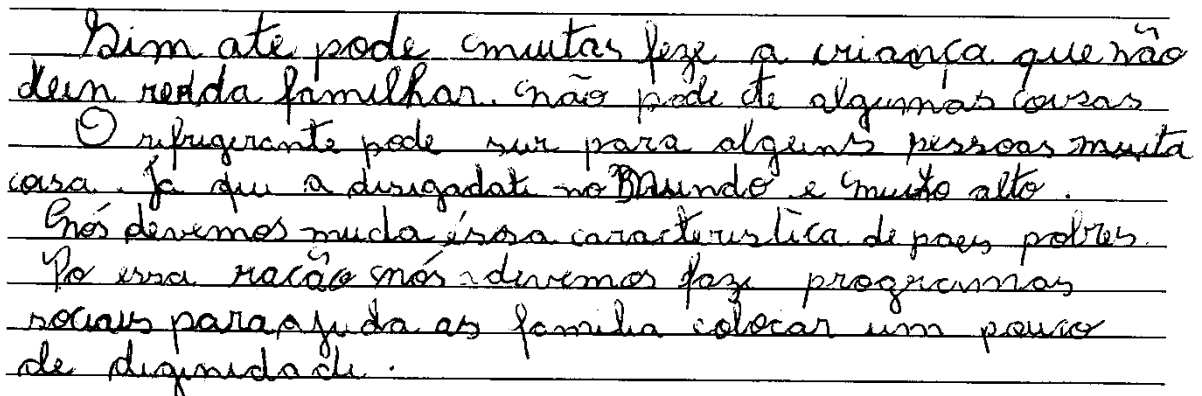 Sim ate pode muitas feze a criança que não
dein renda familhar. não pode te algumas cousas
O rifrugerante pode sur para alguns pessoas muita
cosa. Ja que a disigadati no Mundo e muito alto.
nós devemos muda éssa caracteristica de paes pobres.
Po essa racão nós devemos faze programas
sociais para ajuda as familia colocar um pouco
de diginidade.